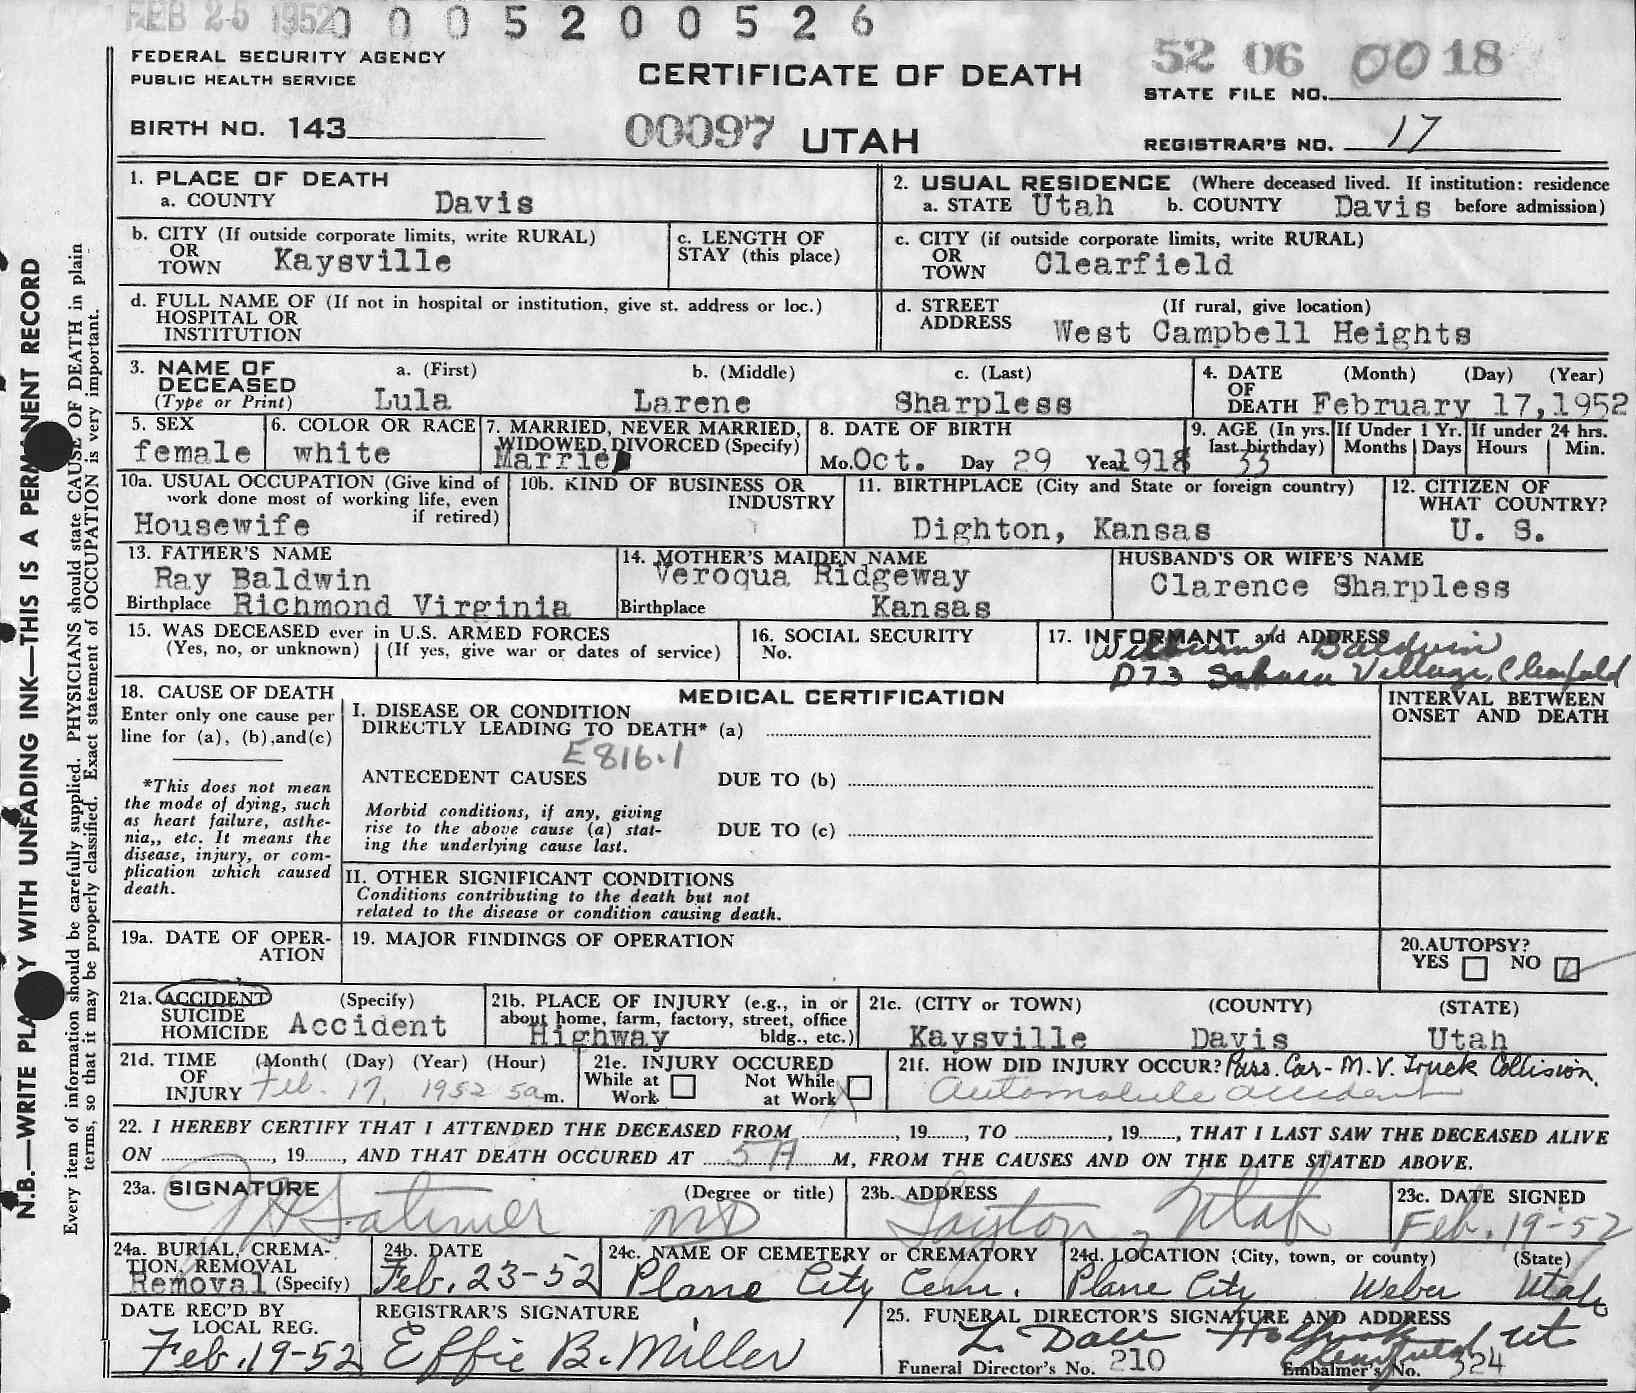 FEB 25 1952
0 0 0 5 2 0 0 5 2 6
FEDERAL SECURITY AGENCY
PUBLIC HEALTH SERVICE
CERTIFICATE OF DEATH
52 06 0018
STATE FILE NO.
BIRTH NO. 143
00097 UTAH
REGISTRAR'S NO. 17
1. PLACE OF DEATH
a. COUNTY Davis
2. USUAL RESIDENCE (Where deceased lived. If institution: residence
a. STATE Utah b. COUNTY Davis before admission)
b. CITY (If outside corporate limits, write RURAL)
OR
TOWN Kaysville
c. LENGTH OF
STAY (this place)
c. CITY (if outside corporate limits, write RURAL)
OR
TOWN Clearfield
d. FULL NAME OF (If not in hospital or institution, give st. address or loc.)
HOSPITAL OR
INSTITUTION
d. STREET (If rural, give location)
ADDRESS West Campbell Heights
3. NAME OF a. (First) b. (Middle) c. (Last)
DECEASED
(Type or Print) Lula Larene Sharpless
4. DATE (Month) (Day) (Year)
OF
DEATH February 17, 1952
5. SEX
female
6. COLOR OR RACE
white
7. MARRIED, NEVER MARRIED,
WIDOWED, DIVORCED (Specify)
Married
8. DATE OF BIRTH
Mo. Oct. Day 29 Year 1918
9. AGE (In yrs.
last birthday) 33
If Under 1 Yr.
Months Days
If under 24 hrs.
Hours Min.
10a. USUAL OCCUPATION (Give kind of
work done most of working life, even
if retired)
Housewife
10b. KIND OF BUSINESS OR
INDUSTRY
11. BIRTHPLACE (City and State or foreign country)
Dighton, Kansas
12. CITIZEN OF
WHAT COUNTRY?
U. S.
13. FATHER'S NAME
Ray Baldwin
Birthplace Richmond Virginia
14. MOTHER'S MAIDEN NAME
Veroqua Ridgeway
Birthplace Kansas
HUSBAND'S OR WIFE'S NAME
Clarence Sharpless
15. WAS DECEASED ever in U.S. ARMED FORCES
(Yes, no, or unknown) (If yes, give war or dates of service)
16. SOCIAL SECURITY
No.
17. INFORMANT and ADDRESS
Wilburn Baldwin
D73 Sahara Village, Clearfield
18. CAUSE OF DEATH
Enter only one cause per
line for (a), (b), and (c)
*This does not mean
the mode of dying, such
as heart failure, asthe-
nia,, etc. It means the
disease, injury, or com-
plication which caused
death.
MEDICAL CERTIFICATION
I. DISEASE OR CONDITION
DIRECTLY LEADING TO DEATH* (a)
E816.1
ANTECEDENT CAUSES DUE TO (b)
Morbid conditions, if any, giving
rise to the above cause (a) stat-
ing the underlying cause last.
DUE TO (c)
II. OTHER SIGNIFICANT CONDITIONS
Conditions contributing to the death but not
related to the disease or condition causing death.
INTERVAL BETWEEN
ONSET AND DEATH
19a. DATE OF OPER-
ATION
19. MAJOR FINDINGS OF OPERATION
20. AUTOPSY?
YES NO
21a. ACCIDENT (Specify)
SUICIDE
HOMICIDE Accident
21b. PLACE OF INJURY (e.g., in or
about home, farm, factory, street, office
bldg., etc.)
Highway
21c. (CITY or TOWN) (COUNTY) (STATE)
Kaysville Davis Utah
21d. TIME (Month( (Day) (Year) (Hour)
OF
INJURY Feb. 17, 1952 5a m.
21e. INJURY OCCURED
While at Work Not While at Work
21f. HOW DID INJURY OCCUR? Pass. Car - M.V. Truck Collision.
Automobile accident
22. I HEREBY CERTIFY THAT I ATTENDED THE DECEASED FROM , 19 , TO , 19 , THAT I LAST SAW THE DECEASED ALIVE
ON , 19 , AND THAT DEATH OCCURED AT 5 A M, FROM THE CAUSES AND ON THE DATE STATED ABOVE.
23a. SIGNATURE (Degree or title)
MD
23b. ADDRESS
Layton, Utah
23c. DATE SIGNED
Feb. 19-52
24a. BURIAL, CREMA-
TION, REMOVAL
Removal (Specify)
24b. DATE
Feb. 23-52
24c. NAME OF CEMETERY or CREMATORY
Plane City Cem.
24d. LOCATION (City, town, or county) (State)
Plane City Weber Utah
DATE REC'D BY
LOCAL REG.
Feb. 19-52
REGISTRAR'S SIGNATURE
Effie B. Miller
25. FUNERAL DIRECTOR'S SIGNATURE AND ADDRESS
L. Dale
Clearfield Ut
Funeral Director's No. 210 Embalmer's No. 324
N.B.—WRITE PLAINLY WITH UNFADING INK—THIS IS A PERMANENT RECORD
Every item of information should be carefully supplied. PHYSICIANS should state CAUSE OF DEATH in plain
terms, so that it may be properly classified. Exact statement of OCCUPATION is very important.